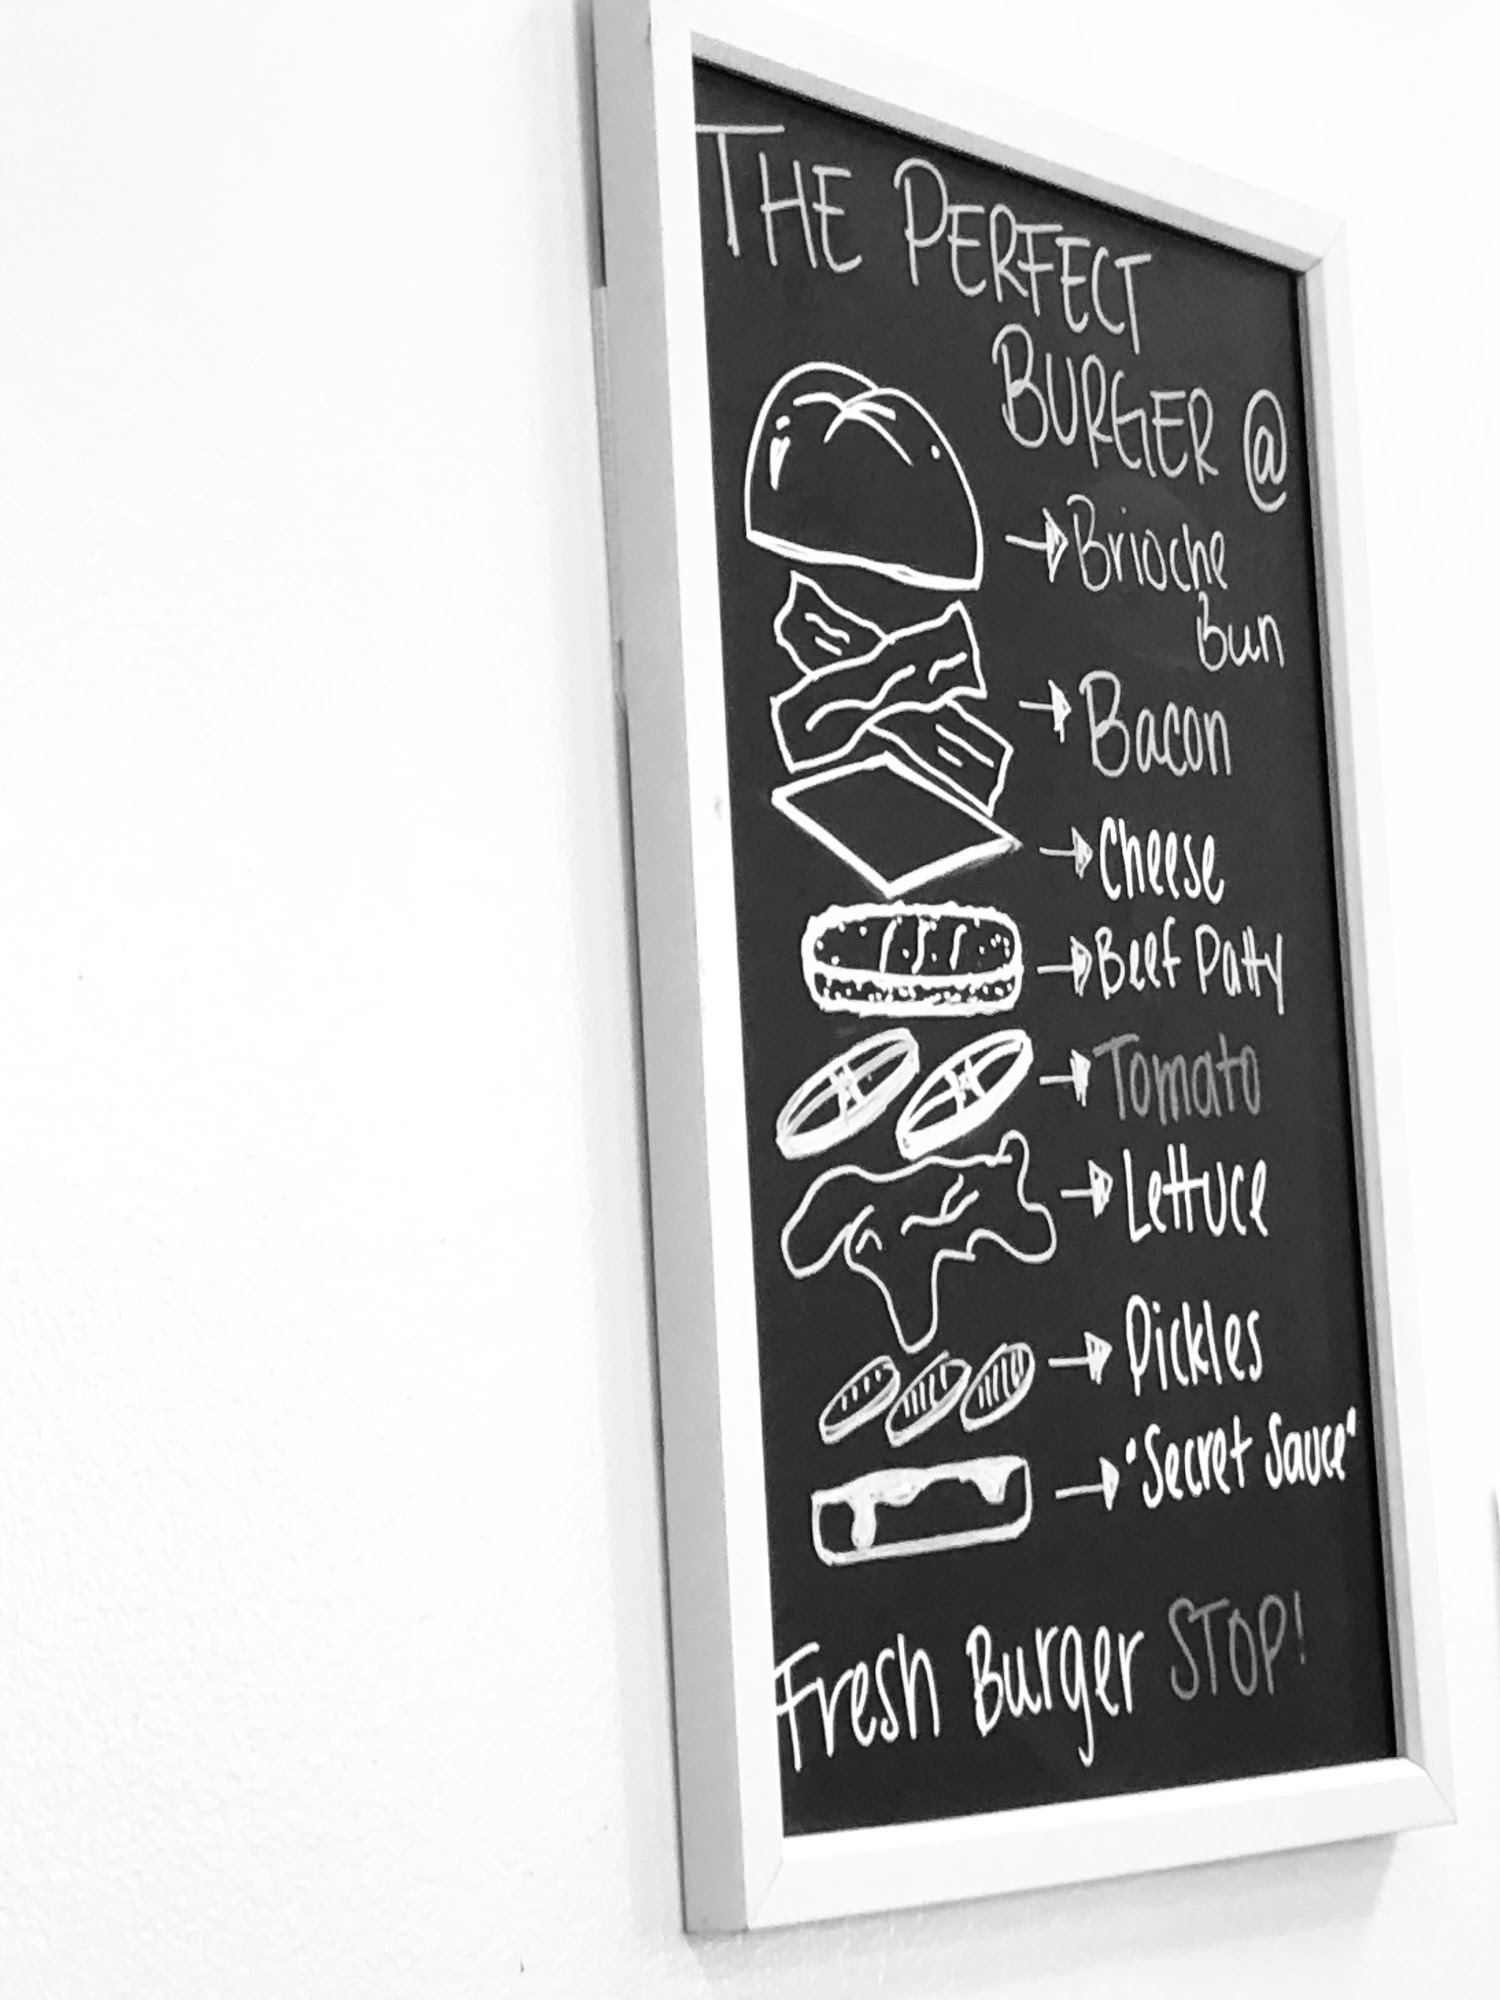 THE PERFECT
BURGER @
Brioche
Bun
Bacon
Cheese
Beef Patty
Tomato
Lettuce
Pickles
"Secret Sauce"
Fresh Burger STOP!